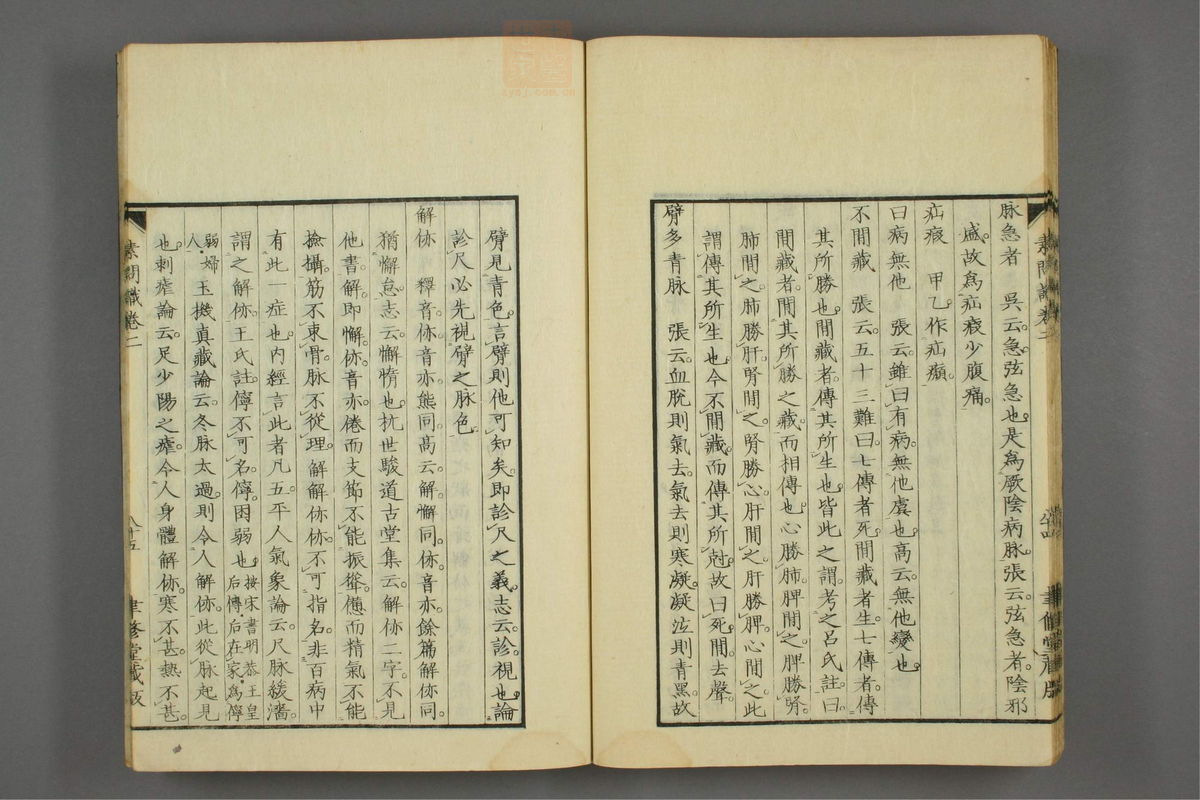 脉急者　吳云。急。弦急也。是爲厥陰病脉。張云。弦急者。陰邪
盛。故爲疝瘕少腹痛。
疝瘕　甲乙作疝㿗。
曰病無他　張云。雖曰有病。無他虞也。高云。無他變也。
不間藏　張云。五十三難曰。七傳者死。間藏者生。七傳者。傳
其所勝也。間藏者。傳其所生也。皆此之謂。考之呂氏註曰。
間藏者。間其所勝之藏。而相傳也。心勝肺。脾間之。脾勝腎。
肺間之。肺勝肝。腎間之。腎勝心。肝間之。肝勝脾。心間之。此
謂傳其所生也。今不間藏。而傳其所尅。故曰死。間去聲。
臂多青脉　張云。血脫則氣去。氣去則寒凝。凝泣則青黑。故
臂見青色。言臂則他可知矣。即診尺之義。志云。診。視也。論
診尺。必先視臂之脉色。
解㑊　釋音。㑊音亦。熊同。高云。解。懈同。㑊音亦。餘篇解㑊同。
猶懈怠。志云。懈惰也。抗世駿道古堂集云。解㑊二字。不見
他書。解即懈。㑊音亦。倦而支節不能振聳。憊而精氣不能
撿攝。筋不束骨。脉不從理。解解㑊㑊。不可指名。非百病中
有此一症也。內經言此者凡五。平人氣象論云。尺脉緩濇。
謂之解㑊。王氏註。儜不可名。儜。困弱也。按宋書明恭王皇后傳。后在家爲儜
弱婦人。玉機真藏論云。冬脉太過。則令人解㑊。此從脉起見
也。刺瘧論云。足少陽之瘧。令人身體解㑊。寒不甚。熱不甚。
素問識卷二
八十五
聿修堂藏版